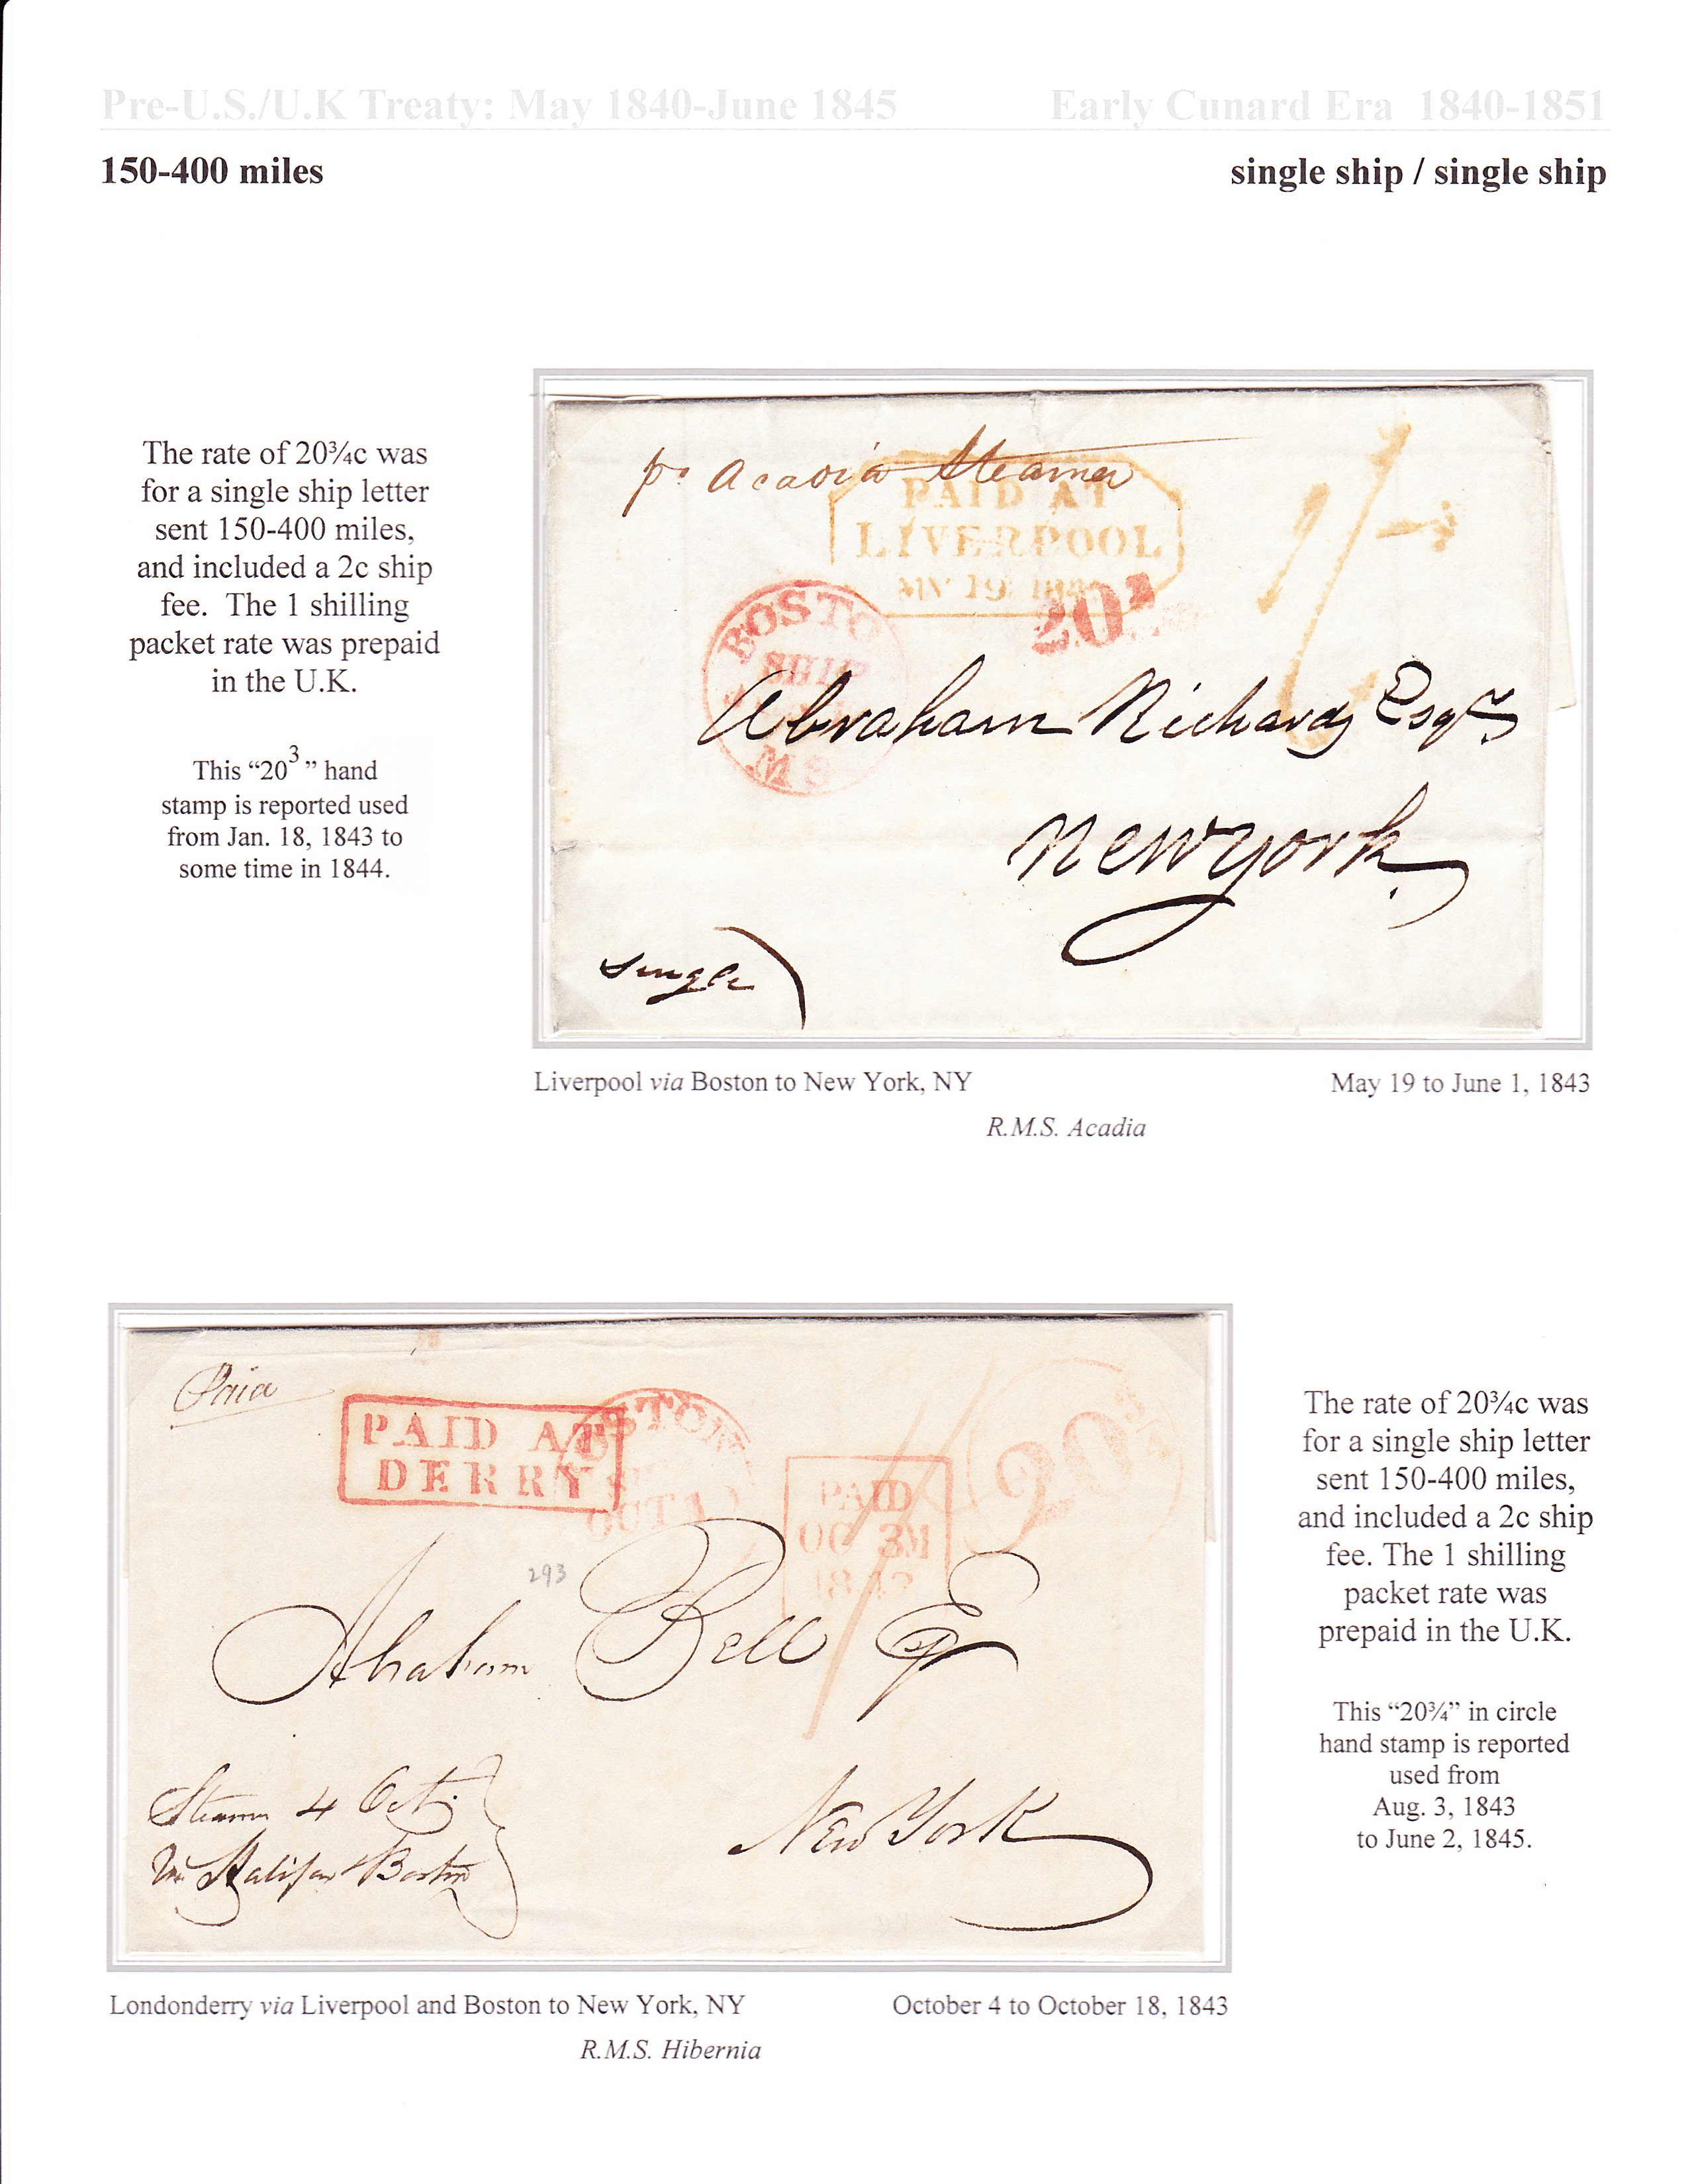 Pre-U.S./U.K Treaty: May 1840-June 1845 Early Cunard Era 1840-1851
150-400 miles single ship / single ship
The rate of 20¾c was
for a single ship letter
sent 150-400 miles,
and included a 2c ship
fee. The 1 shilling
packet rate was prepaid
in the U.K.
This “20³” hand
stamp is reported used
from Jan. 18, 1843 to
some time in 1844.
pr Acadia Steamer
PAID AT
LIVERPOOL
MY 19 184
20³
1/-
BOSTO
SHIP
MS
Abraham Richards Esqr
New york
single
Liverpool via Boston to New York, NY May 19 to June 1, 1843
R.M.S. Acadia
Paid
PAID AT
DERRY
BOSTON
OCT
PAID
OC 3M
1843
20¾
293
Abraham Bell Esq
Steamer 4 Oct.
via Halifax & Boston
New York
The rate of 20¾c was
for a single ship letter
sent 150-400 miles,
and included a 2c ship
fee. The 1 shilling
packet rate was
prepaid in the U.K.
This “20¾” in circle
hand stamp is reported
used from
Aug. 3, 1843
to June 2, 1845.
Londonderry via Liverpool and Boston to New York, NY October 4 to October 18, 1843
R.M.S. Hibernia